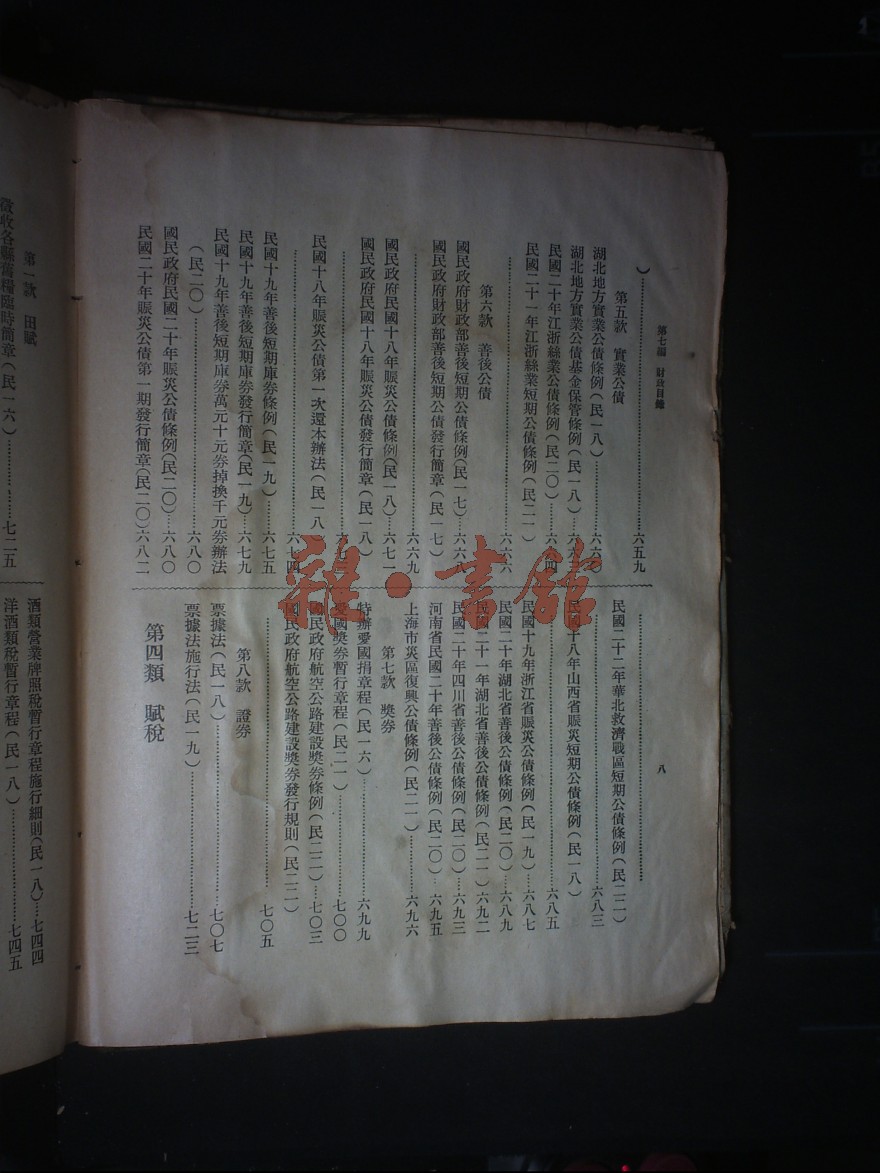 第七編 財政目錄
八
)……六五九
第五款 實業公債
湖北地方實業公債條例(民一八)……六六
湖北地方實業公債基金保管條例(民一八)…六六
民國二十年江浙絲業公債條例(民二〇)…六六四
民國二十一年江浙絲業短期公債條例(民二一)
……六六六
第六款 善後公債
國民政府財政部善後短期公債條例(民一七)…六六八
國民政府財政部善後短期公債發行簡章(民一七)
……六六九
國民政府民國十八年賑災公債條例(民一八)…六七一
國民政府民國十八年賑災公債發行簡章(民一八)
……六七三
民國十八年賑災公債第一次還本辦法(民一八
……六七四
民國十九年善後短期庫券條例(民一九)…六七五
民國十九年善後短期庫券發行簡章(民一九)…六七九
民國十九年善後短期庫券萬元十元券掉換千元券辦法
(民二〇)……六八〇
國民政府民國二十年賑災公債條例(民二〇)…六八〇
民國二十年賑災公債第一期發行簡章(民二〇)六八二
民國二十二年華北救濟戰區短期公債條例(民二二)
……六八三
民國十八年山西省賑災短期公債條例(民一八)
……六八五
民國十九年浙江省賑災公債條例(民一九)…六八七
民國二十年湖北省善後公債條例(民二〇)…六八九
民國二十一年湖北省善後公債條例(民二一)六九二
民國二十年四川省善後公債條例(民二〇)…六九三
河南省民國二十年善後公債條例(民二〇)…六九五
上海市災區復興公債條例(民二一)……六九六
第七款 獎券
特辦愛國捐章程(民一六)……六九九
愛國獎券暫行章程(民二一)……七〇〇
國民政府航空公路建設獎券條例(民二二)…七〇三
國民政府航空公路建設獎券發行規則(民二二)
……七〇五
第八款 證券
票據法(民一八)……七〇七
票據法施行法(民一九)……七二三
第四類 賦稅
第一款 田賦
徵收各縣舊糧臨時簡章(民一六)……七二五
酒類營業牌照稅暫行章程施行細則(民一八)…七四四
洋酒類稅暫行章程(民一八)……七四五
雜·書館